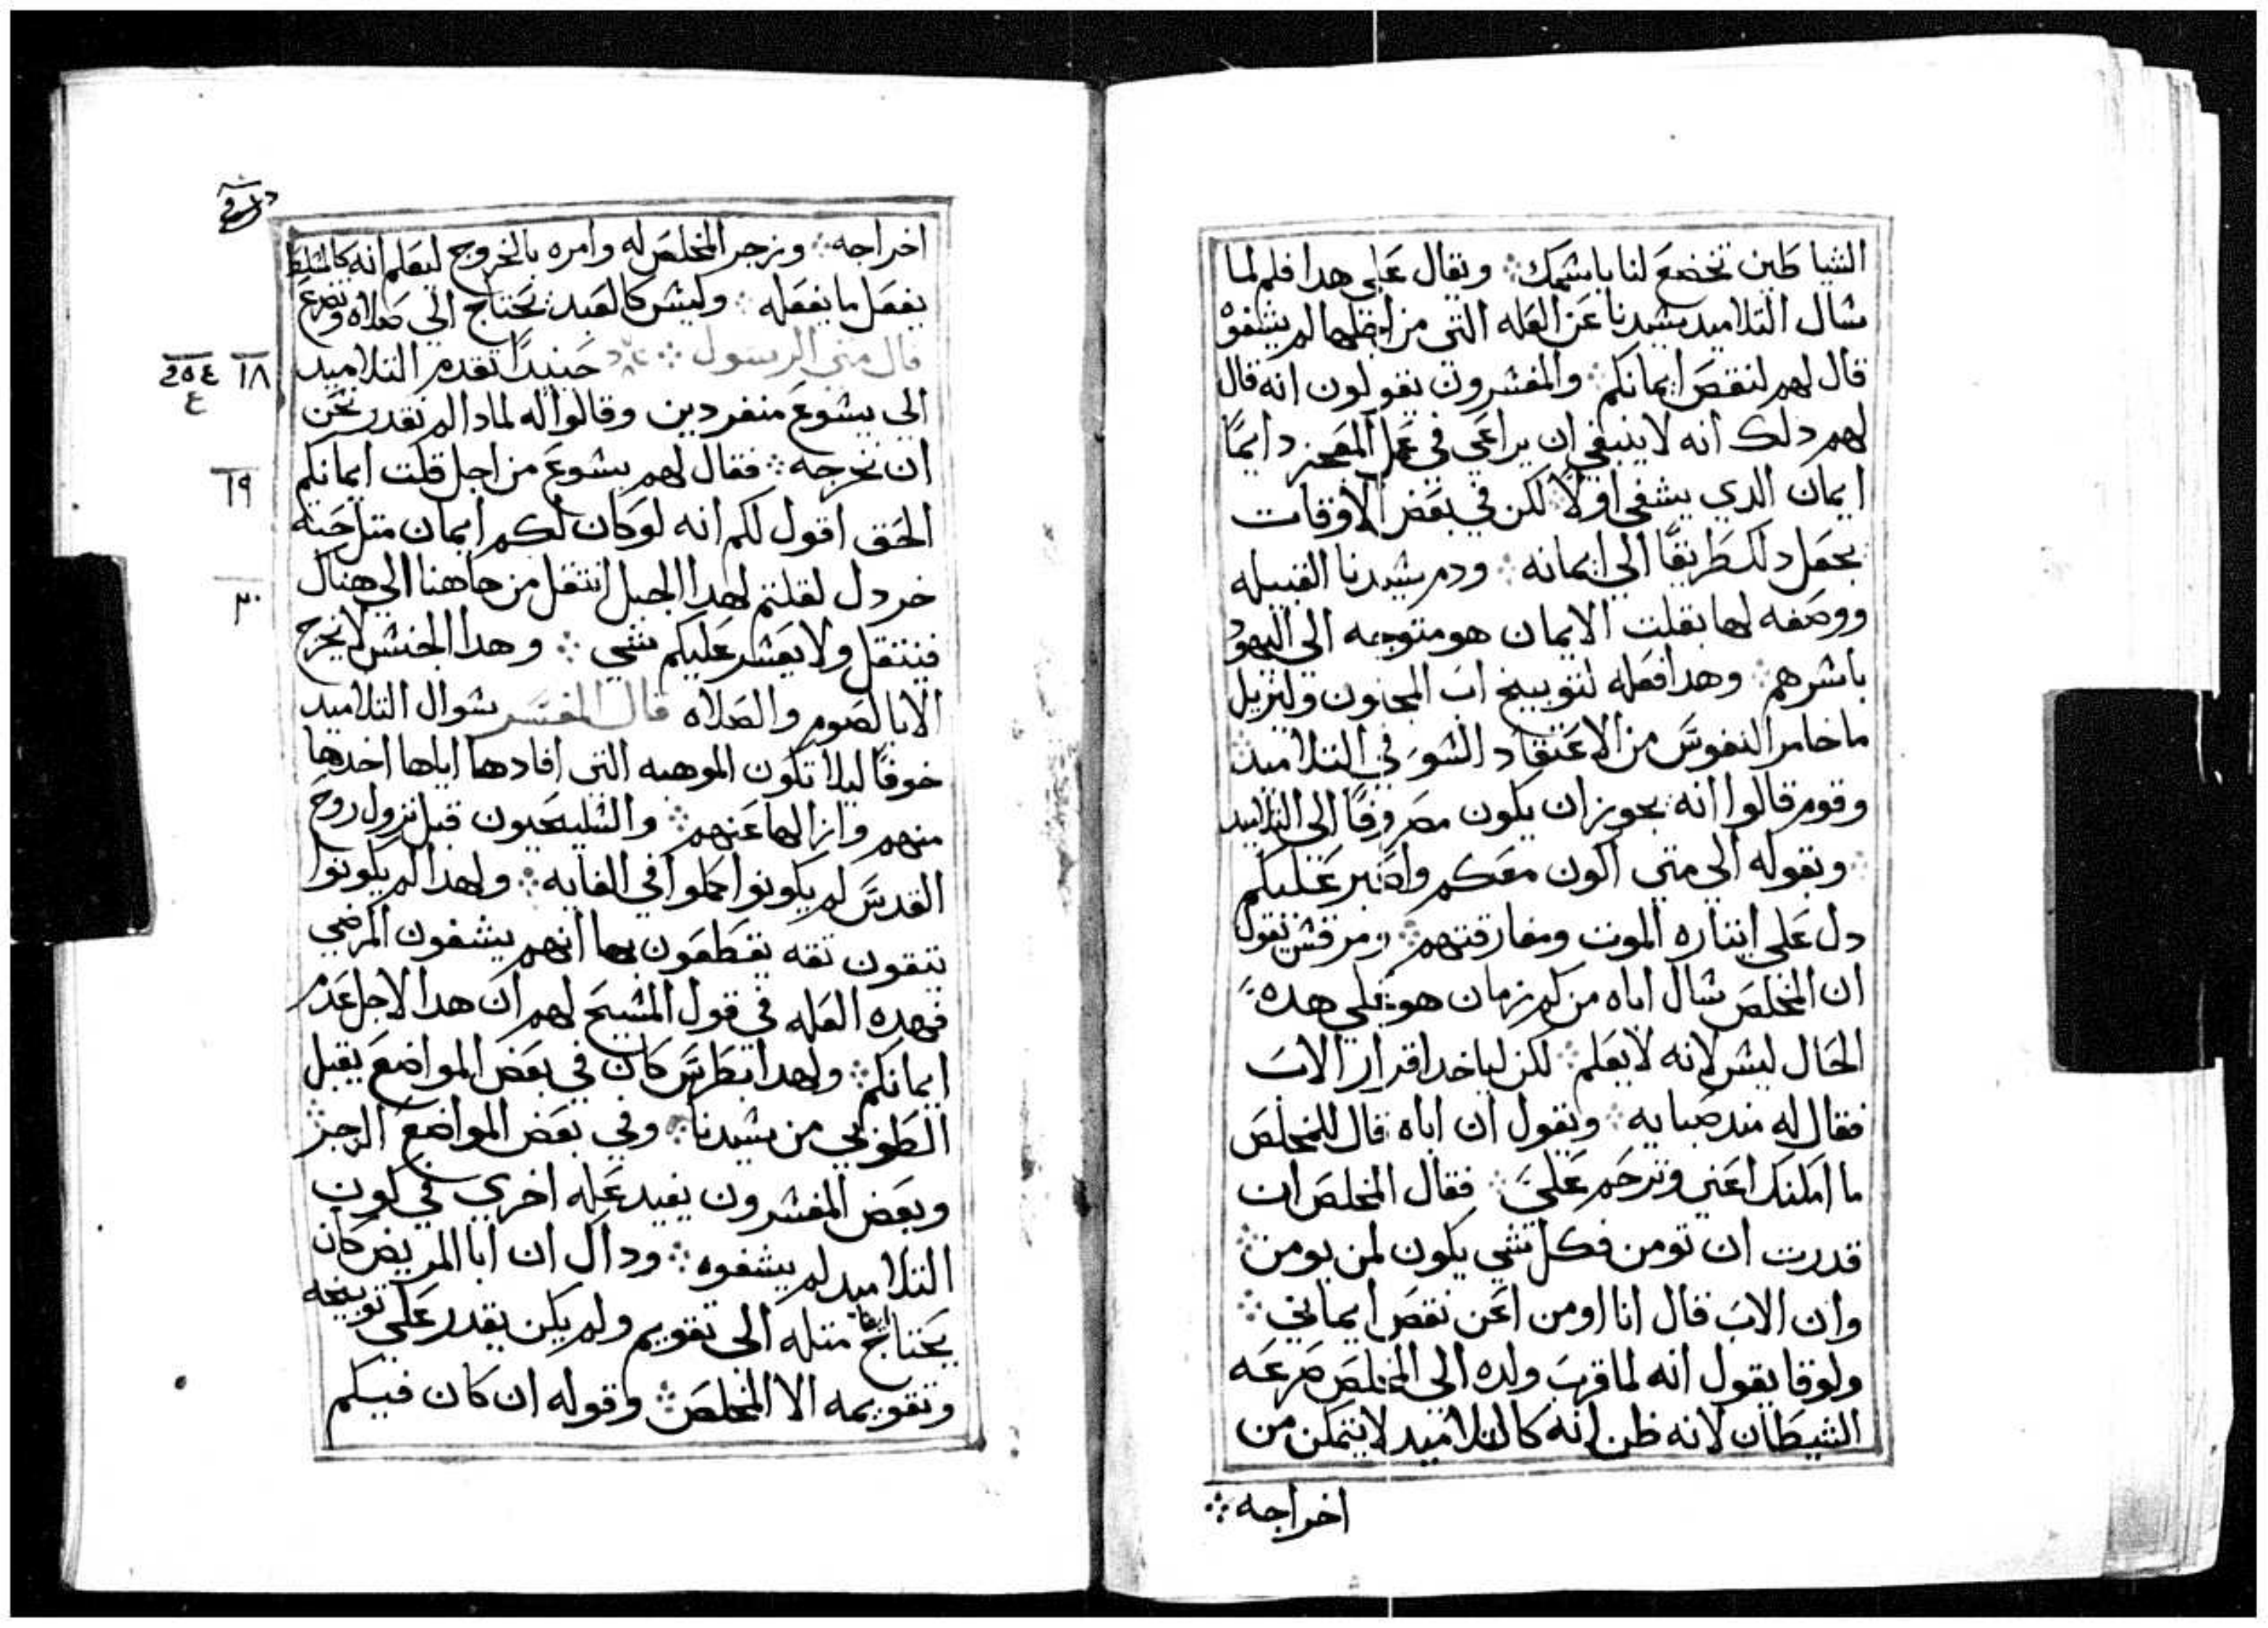 الشياطين تخضع لنا باسمك ∴ ويقال علي هدا فلم لما
سال التلاميد سيدنا عن العله التي من اجلها لم يشفوه
قال لهم لنقص ايمانكم ∴ والمفسرون يقولون انه قال
لهم دلك انه لا ينبغي ان يراعي في عمل المعجز دايمًا
ايمان الدي يشفي اولًا لكن في بعض الاوقات
يجعل دلك طريقًا الي ايمانه ∴ ودم سيدنا القبيله
ووصفه لها بقلت الايمان هو متوجه الي اليهود
باسرهم ∴ وهدا فعله لتوبيخ اب المجنون وليزيل
ما خامر النفوس من الاعتقاد السو في التلاميد ∴
وقوم قالوا انه يجوز ان يكون مصروفًا الي التلاميد
∴ وبقوله الي متي اكون معكم واصبر عليكم
دل علي ايتاره الموت ومفارقتهم ∴ ومرقس يقول
ان المخلص سال اباه من كم زمان هو علي هده
الحال ليس لانه لا يعلم ∴ لكن لياخد اقرار الاب
فقال له مند صبايه ∴ ويقول ان اباه قال للمخلص
ما امكنك اعني وترحم علي ∴ فقال المخلص ان
قدرت ان تومن فكل شي يكون لمن يومن ∴
وان الاب قال انا اومن اعن نقص ايماني ∴
ولوقا يقول انه لما قرب ولده الي المخلص صرعه
الشيطان لانه ظن انه كالتلاميد لا يتمكن من
اخراجه ∴
اخراجه ∴ وزجر المخلص له وامره بالخروج ليعلم انه كالمسلط
يفعل ما يفعله ∴ وليس كالعبد يحتاج الي صلاه وتضرع
قال متي الرسول ∴ حينيدًا تقدم التلاميد
الي يسوع منفردين وقالوا له لمادا لم نقدر نحن
ان نخرجه ∴ فقال لهم يسوع من اجل قلت ايمانكم
الحق اقول لكم انه لو كان لكم ايمان متل حبة
خردل لقلتم لهدا الجبل انتقل من هاهنا الي هناك
فينتقل ولا يعسر عليكم شي ∴ وهدا الجنس لا يخرج
الا بالصوم والصلاه قال المفسر سوال التلاميد
خوفًا ليلا تكون الموهبه التي افادهما اياها اخدها
منهم وازالها عنهم ∴ والسليحيون قبل نزول روح
القدس لم يكونوا كملوا في الغايه ∴ ولهدا لم يكونوا
يتقون تقه يقطعون بها انهم يشفون المرضي
فهده العله في قول المسيح لهم ان هدا لاجل عدم
ايمانكم ∴ ولهدا بطرس كان في بعض المواضع يقبل
الطوبي من سيدنا ∴ وفي بعض المواضع الزجر ∴
وبعض المفسرون يفيد عله اخري في كون
التلاميد لم يشفوه ∴ وداك ان ابا المريض كان
يحتاج متله الي تقويم ولم يكن يقدر علي توبيخه
وتقويمه الا المخلص ∴ وقوله ان كان فيكم
١٨ ٢٥٤
٤
١٩
٢٠